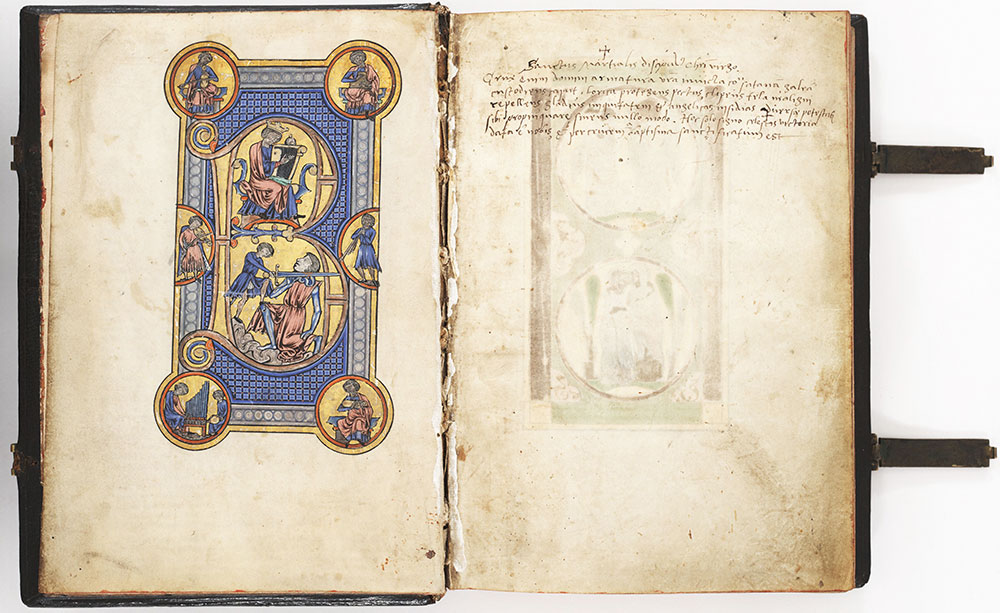 B
+
Sanctus Martialis discipul'
Crux enim domini armatura vra invicta satanā galea
custodiens caput, lorica protegens pectus, clipeus tela maligni
repellens gladius iniquitatem & angelicas insidias perversę potestatis
sibi propinquare sinens nullo modo. Hoc solo signo victoria
data ē nobis & per crucem baptisma sanctificatum est